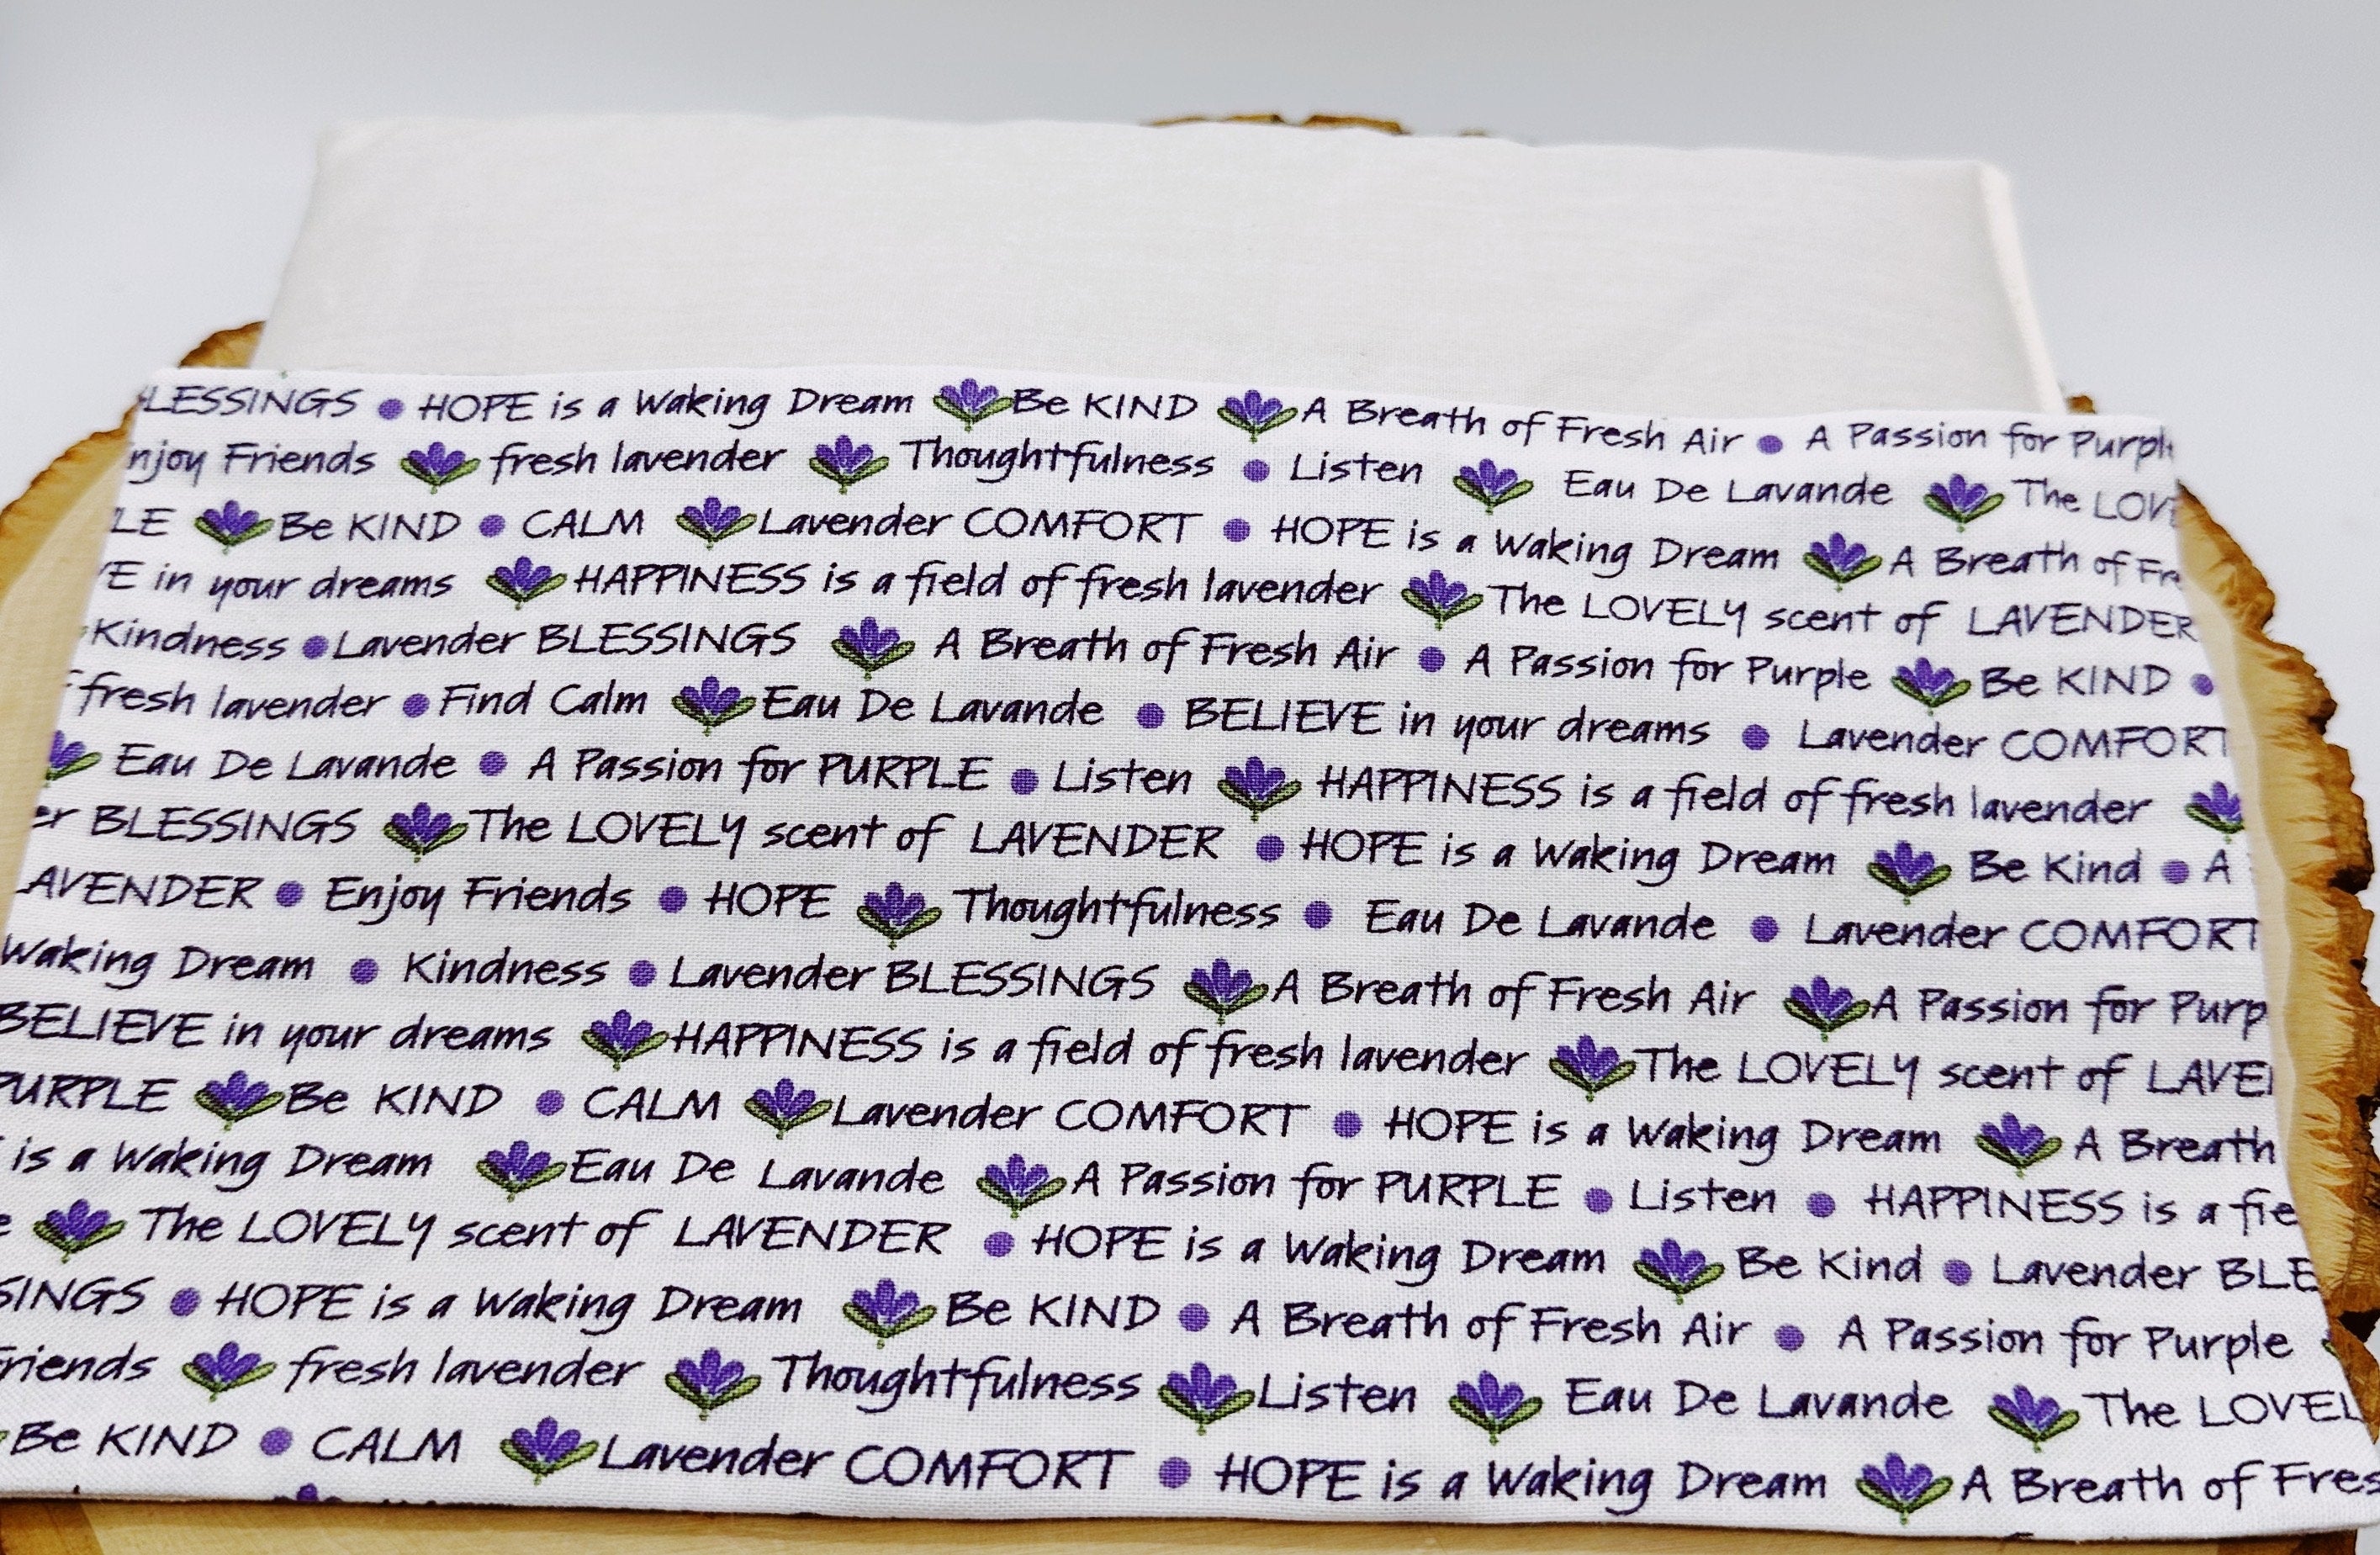 LESSINGS HOPE is a Waking Dream Be KIND A Breath of Fresh Air A Passion for Purple
njoy Friends fresh lavender Thoughtfulness Listen Eau De Lavande The LOV
LE Be KIND CALM Lavender COMFORT HOPE is a Waking Dream A Breath of Fr
E in your dreams HAPPINESS is a field of fresh lavender The LOVELY scent of LAVENDER
Kindness Lavender BLESSINGS A Breath of Fresh Air A Passion for Purple Be KIND
f fresh lavender Find Calm Eau De Lavande BELIEVE in your dreams Lavender COMFORT
Eau De Lavande A Passion for PURPLE Listen HAPPINESS is a field of fresh lavender
er BLESSINGS The LOVELY scent of LAVENDER HOPE is a Waking Dream Be Kind A
AVENDER Enjoy Friends HOPE Thoughtfulness Eau De Lavande Lavender COMFORT
Waking Dream Kindness Lavender BLESSINGS A Breath of Fresh Air A Passion for Purp
BELIEVE in your dreams HAPPINESS is a field of fresh lavender The LOVELY scent of LAVE
PURPLE Be KIND CALM Lavender COMFORT HOPE is a Waking Dream A Breath
is a Waking Dream Eau De Lavande A Passion for PURPLE Listen HAPPINESS is a fie
e The LOVELY scent of LAVENDER HOPE is a Waking Dream Be Kind Lavender BLE
SINGS HOPE is a Waking Dream Be KIND A Breath of Fresh Air A Passion for Purple
riends fresh lavender Thoughtfulness Listen Eau De Lavande The LOVEL
Be KIND CALM Lavender COMFORT HOPE is a Waking Dream A Breath of Fres